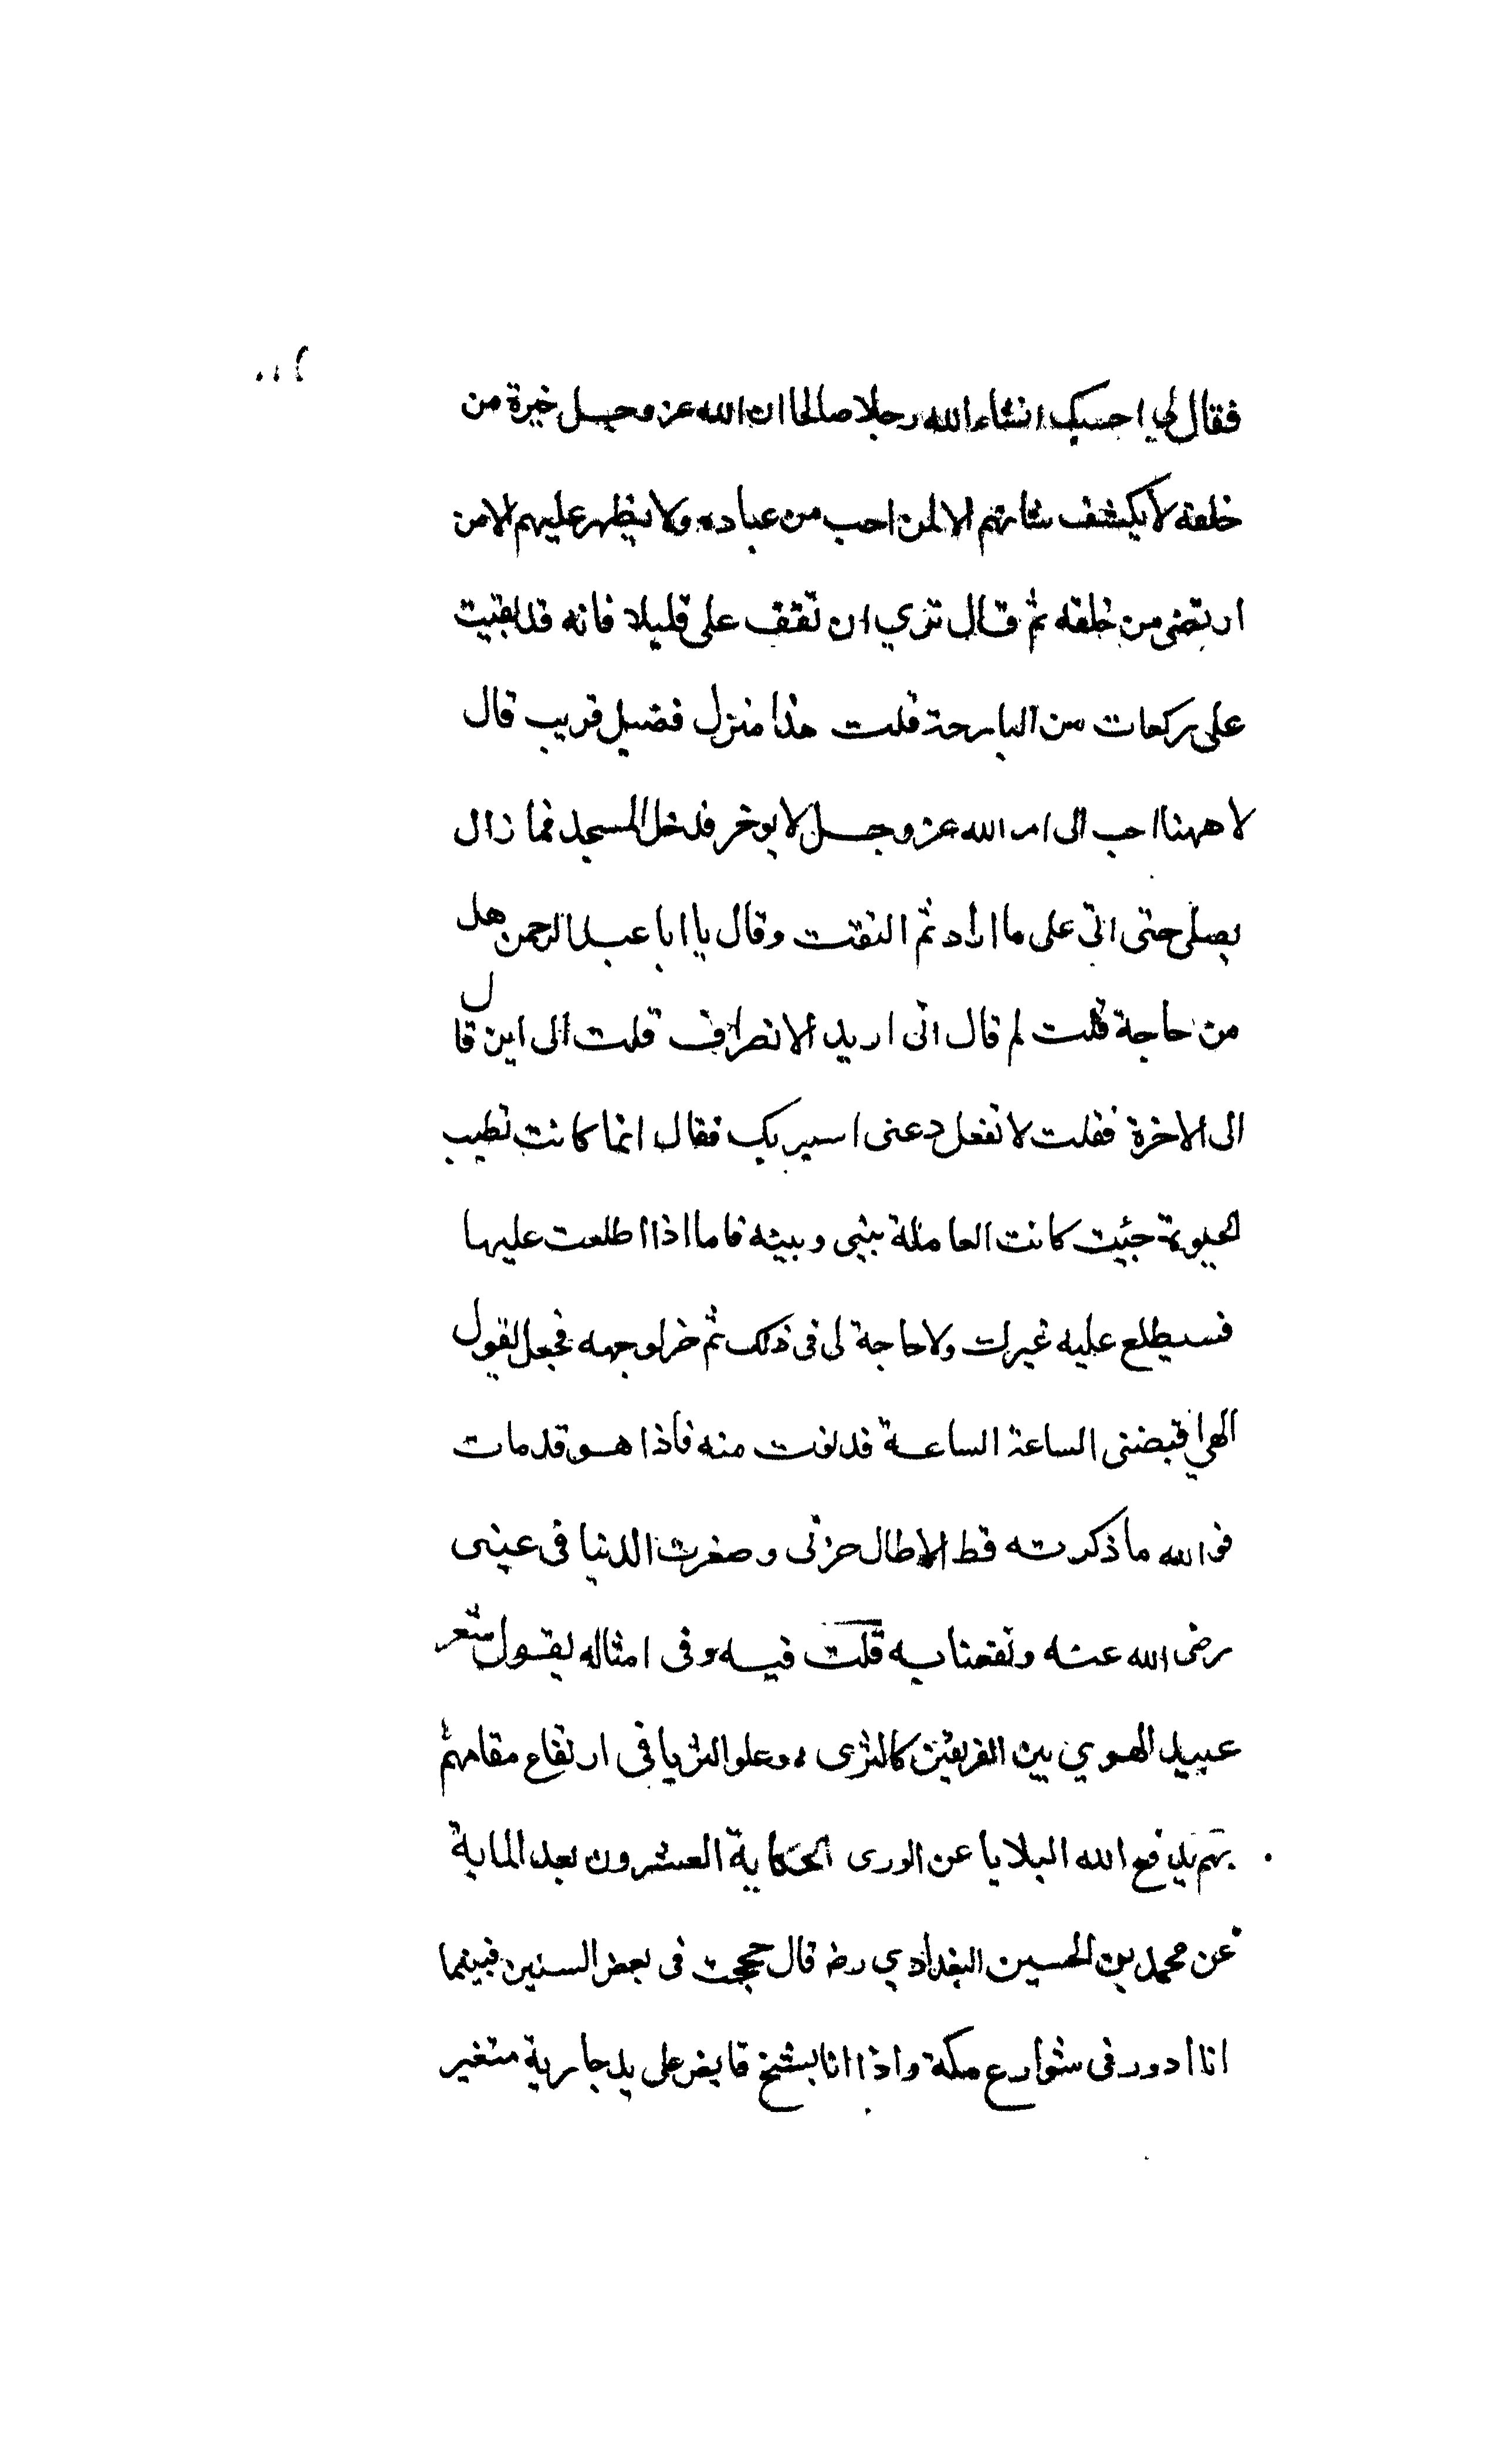 فقال لي احسبك انشاء الله رجلا صالحا ان الله عز وجل خيرة من
خلقه لا يكشف شانهم الا لمن احب من عباده ولا يظهر عليهم الا من
ارتضى من خلقه ثم قال ترى ان تقف على قليلا فانه قد بقيت
على ركعات من البارحة قلت هذا منزل فضيل قريب قال
لا ههنا احب الى امر الله عز وجل لا يوخر فدخل المسجد فما زال
يصلى حتى اتى على ما اراد ثم التفت وقال يا ابا عبد الرحمن هل
من حاجة قلت لم قال انى اريد الانصراف قلت الى اين قال
الى الاخرة فقلت لا تفعل دعنى اسير بك فقال انما كانت تطيب
الحيوة حيث كانت العاملة بينى وبينه فاما اذا اطلعت عليها
فسيطلع عليه غيرك ولا حاجة لى فى ذلك ثم خر لوجهه فجعل يقول
الهي اقبضنى الساعة الساعة فدنوت منه فاذا هو قد مات
فوالله ما ذكرته قط الا طال حزنى وصغرت الدنيا فى عينى
رضى الله عنه ونفعنا به قلت فيه وفى امثاله يقول شعر
عبيد الهوي بين الفريقين كالثرى ، وعلو الثريا فى ارتفاع مقامهم
بهم يدفع الله البلايا عن الورى الحكاية العشرون بعد الماية
عن محمد بن الحسين البغدادي رضه قال حججت فى بعض السنين فبينما
انا ادور فى شوارع مكة واذا انا بشيخ قابض على يد جارية متغير